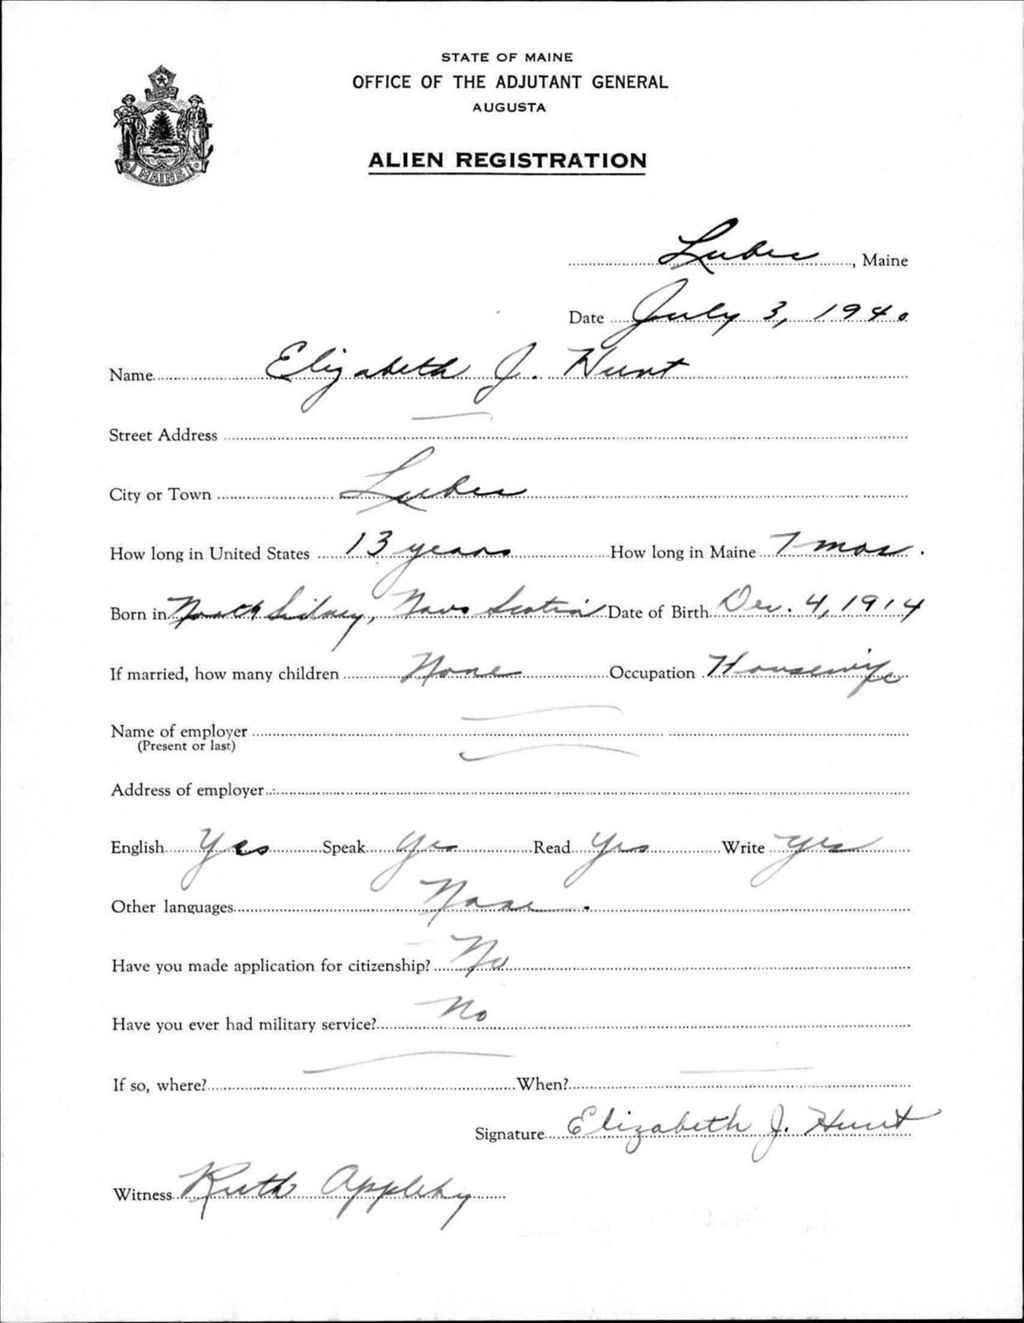 STATE OF MAINE
OFFICE OF THE ADJUTANT GENERAL
AUGUSTA
ALIEN REGISTRATION
MAINE
Lubec, Maine
Date July 3, 1940
Name Elizabeth J. Hunt
Street Address —
City or Town Lubec
How long in United States 13 years How long in Maine 7 mos.
Born in North Sidney, Nova Scotia Date of Birth Dec. 4, 1914
If married, how many children None Occupation Housewife
Name of employer —
(Present or last)
Address of employer —
English Yes Speak Yes Read Yes Write Yes
Other languages None.
Have you made application for citizenship? No
Have you ever had military service? No
If so, where? — When? —
Signature Elizabeth J. Hunt
Witness Ruth Appleby